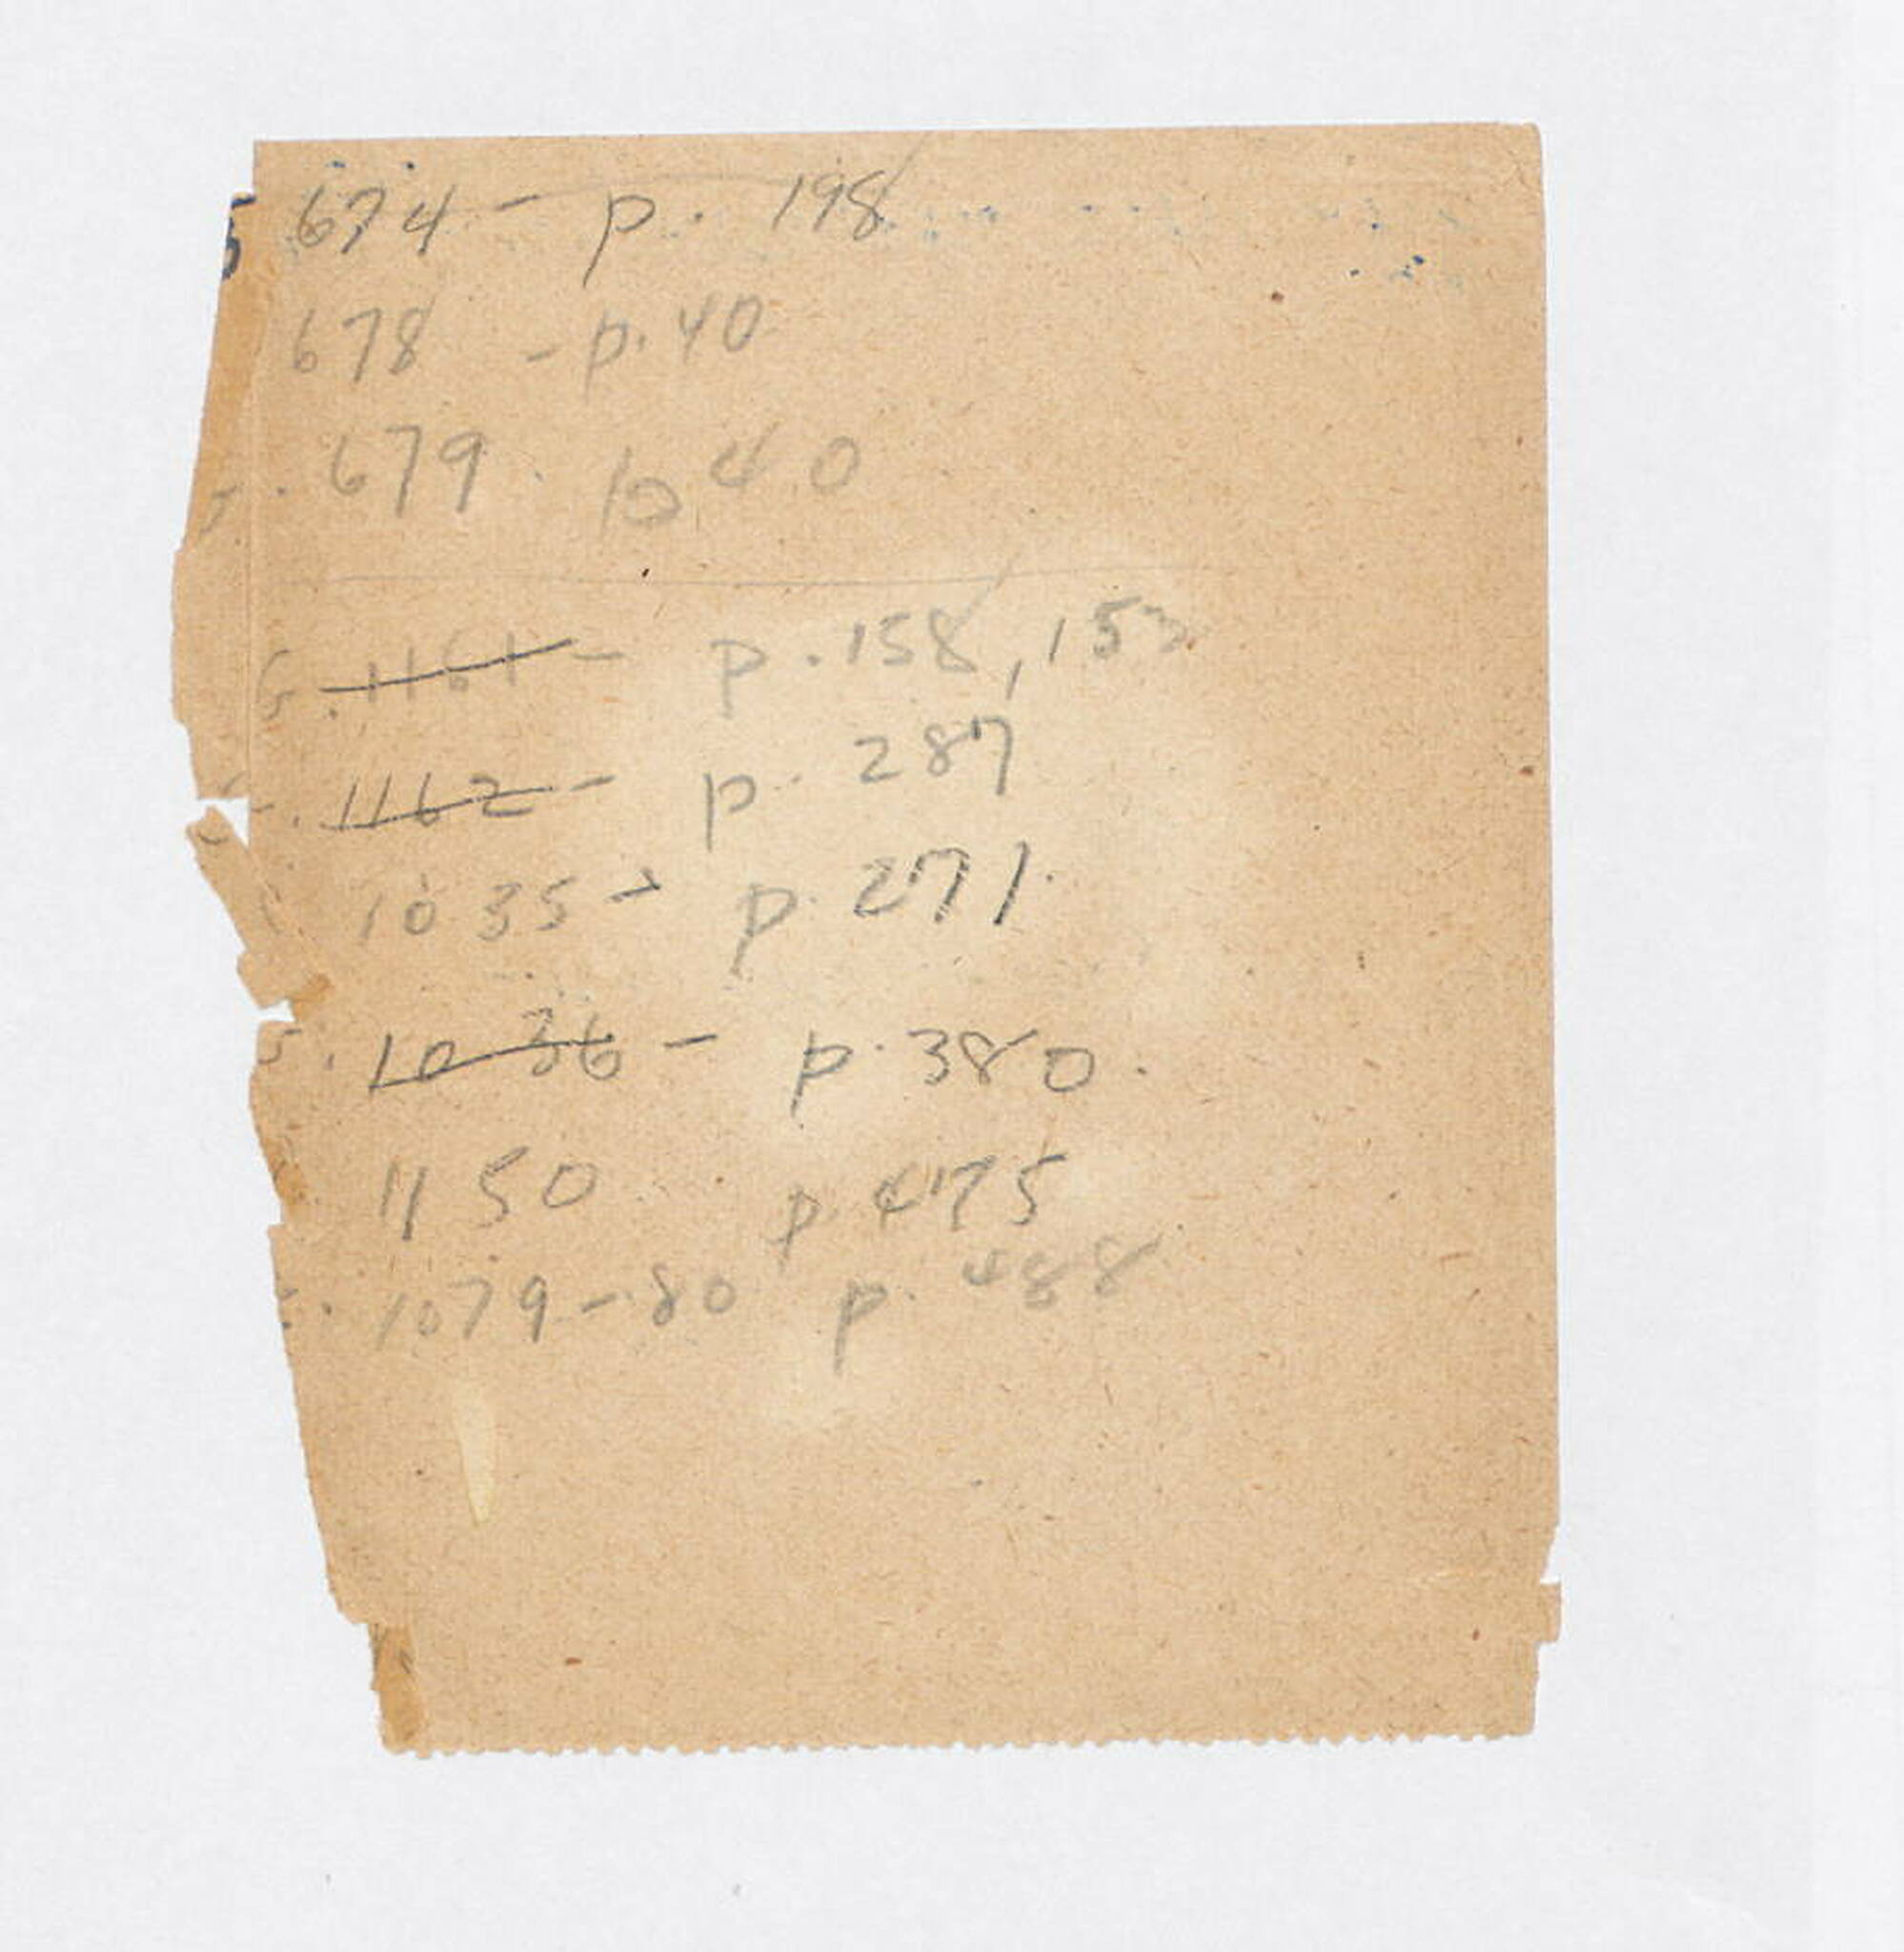 5 674 - p. 198
678 - p. 40
679. p 40
5. 1161 - p. 158, 153
1162 - p. 287
1035 - p. 271.
5. 1036 - p. 380.
1150 p 475
1079-80 p. 488